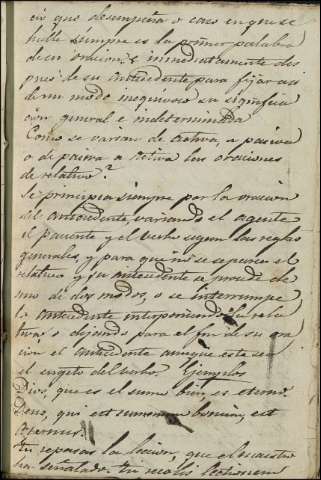 cio que desempeña o caso en que se
halle siempre es la primer palabra
de su oracion, e inmediatamente des
pues de su antecedente para fijar asi
de un modo inequivoco su significa
cion general e indeterminada
Como se varian de activa, a pasiva
o de pasiva a activa las oraciones
de relativo?
Se principia siempre por la oracion
del antecedente variando el agente
el paciente y el verbo segun las reglas
generales, y para que no se separe el
relativo y su antecedente se procede de
uno de dos modos, o se interrumpe
la antecedente interponiendo la rela
tiva o dejando para el fin de su ora
cion el antecedente aunque este sea
el sugeto del verbo. Ejemplos
Dios, que es el sumo bien, es eterno.
Deus, qui est summum bonum, est
eternus.
tu repasas la leccion, que el maestro
ha señalado. tu recolis lectionem